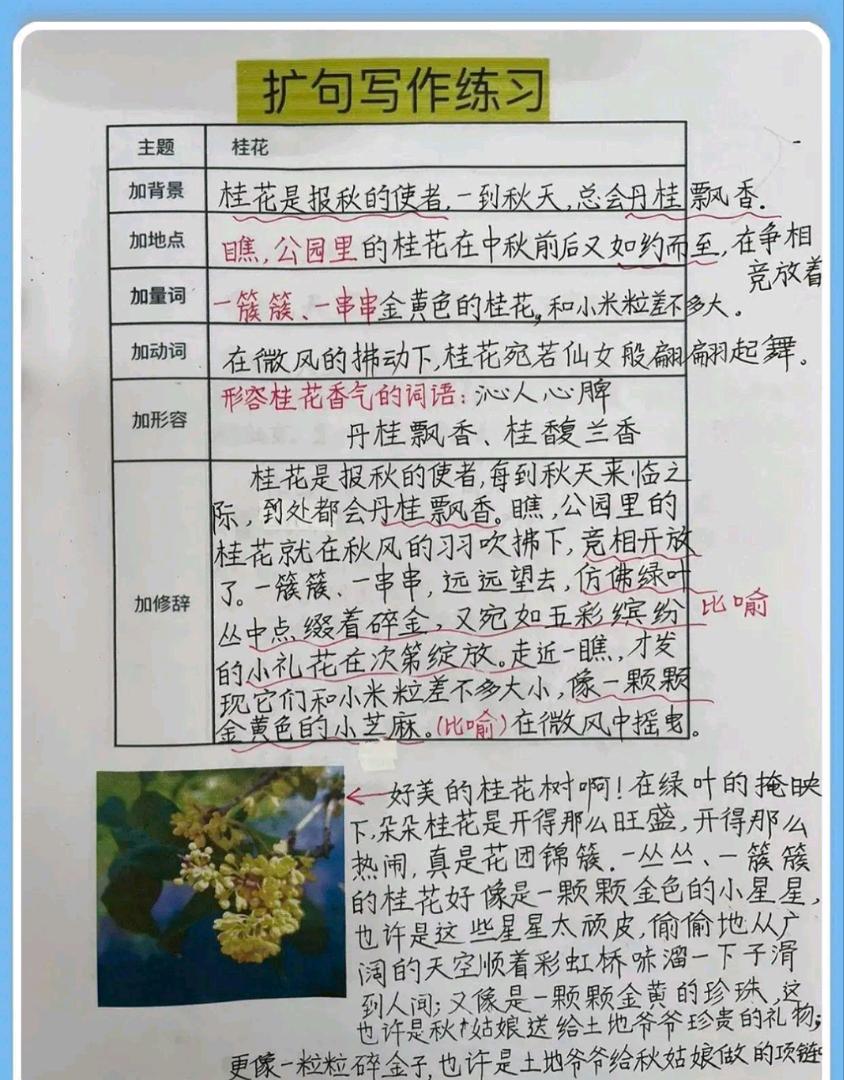 扩句写作练习
主题 桂花
加背景 桂花是报秋的使者,一到秋天,总会丹桂飘香.
加地点 瞧,公园里的桂花在中秋前后又如约而至,在争相
竞放着
加量词 一簇簇、一串串金黄色的桂花,和小米粒差不多大。
加动词 在微风的拂动下,桂花宛若仙女般翩翩起舞。
加形容 形容桂花香气的词语:沁人心脾
丹桂飘香、桂馥兰香
加修辞
桂花是报秋的使者,每到秋天来临之
际,到处都会丹桂飘香。瞧,公园里的
桂花就在秋风的习习吹拂下,竞相开放
了。一簇簇、一串串,远远望去,仿佛绿叶
丛中点缀着碎金,又宛如五彩缤纷 比喻
的小礼花在次第绽放。走近一瞧,才发
现它们和小米粒差不多大小,像一颗颗
金黄色的小芝麻。(比喻)在微风中摇曳。
好美的桂花树啊!在绿叶的掩映
下,朵朵桂花是开得那么旺盛,开得那么
热闹,真是花团锦簇.一丛丛、一簇簇
的桂花好像是一颗颗金色的小星星,
也许是这些星星太顽皮,偷偷地从广
阔的天空顺着彩虹桥哧溜一下子滑
到人间;又像是一颗颗金黄的珍珠,这
也许是秋姑娘送给土地爷爷珍贵的礼物;
更像一粒粒碎金子,也许是土地爷爷给秋姑娘做的项链